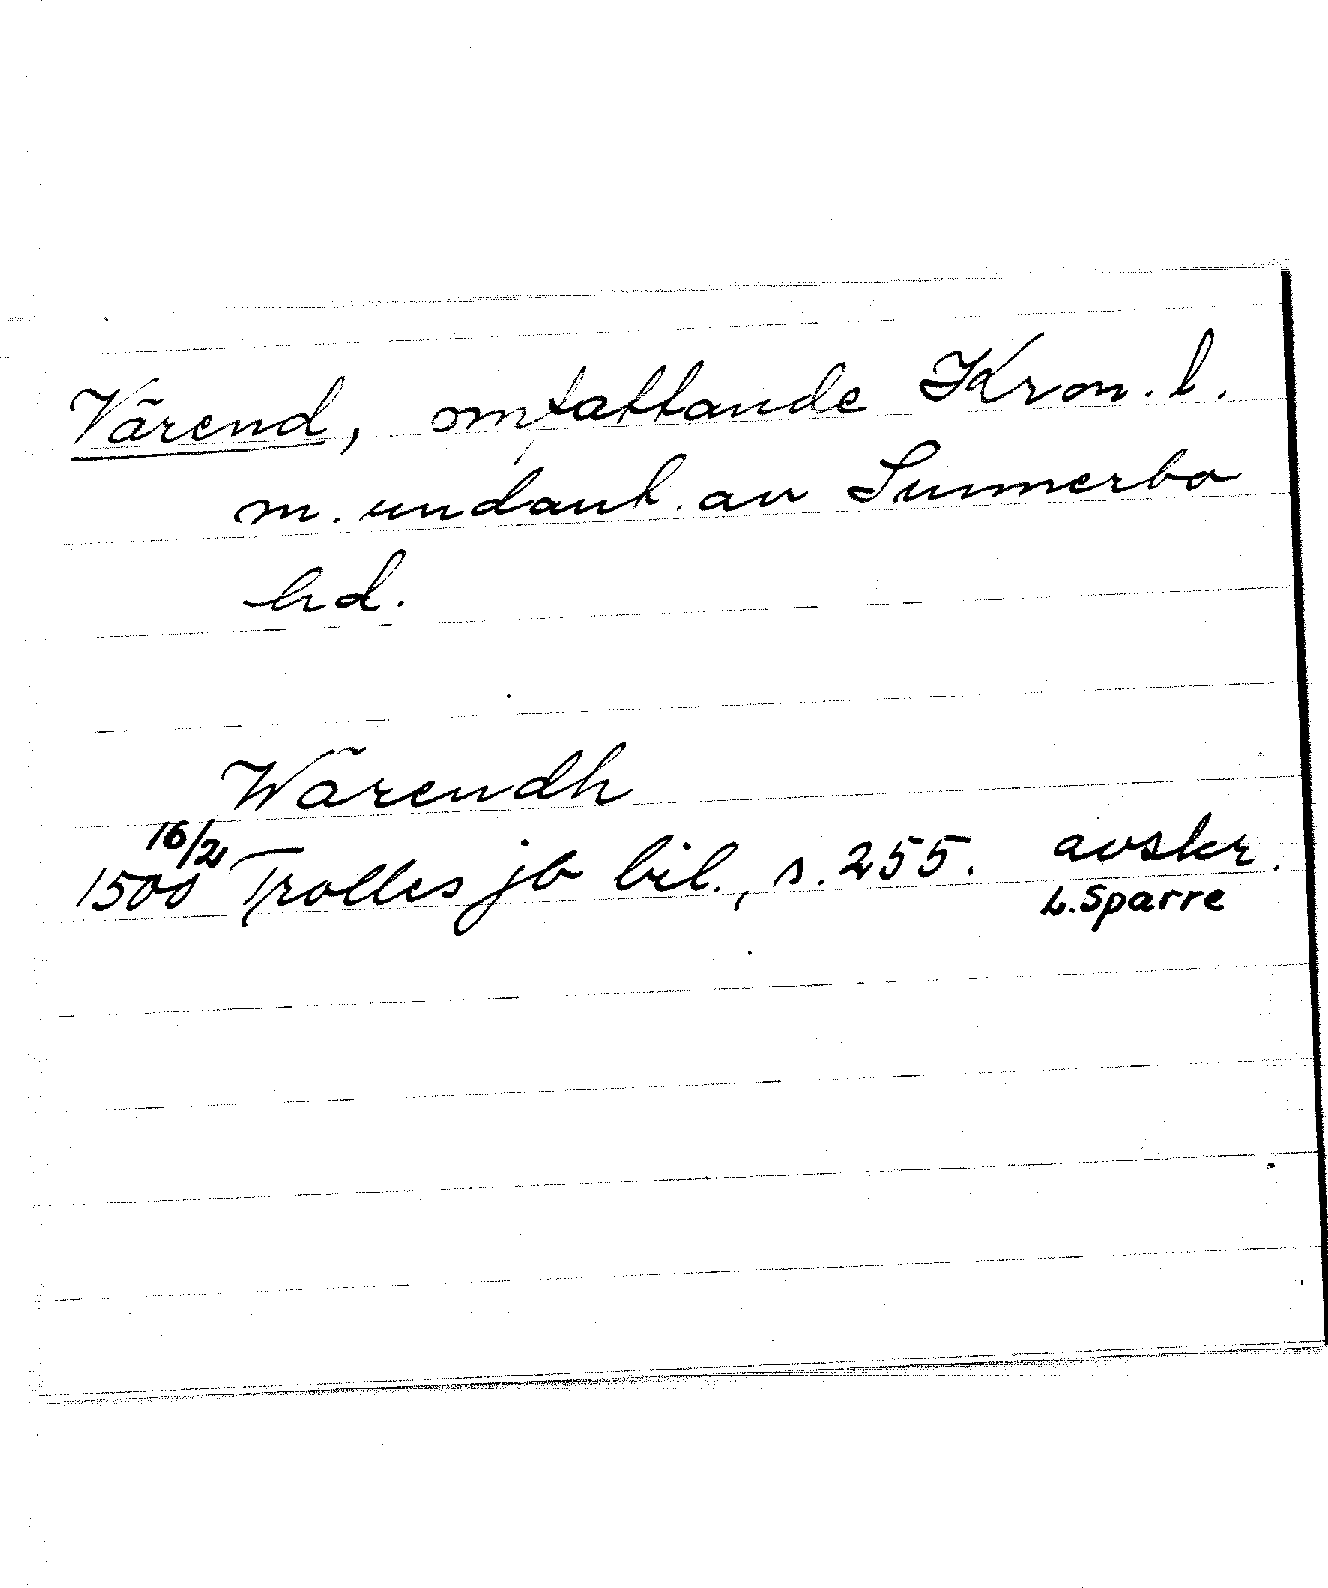 Värend, omfattande Kron. l.
m. undant. av Sunnerbo
hd.
Wärendh
16/2
1500 Trolles jb bil., s. 255. avskr.
L. Sparre